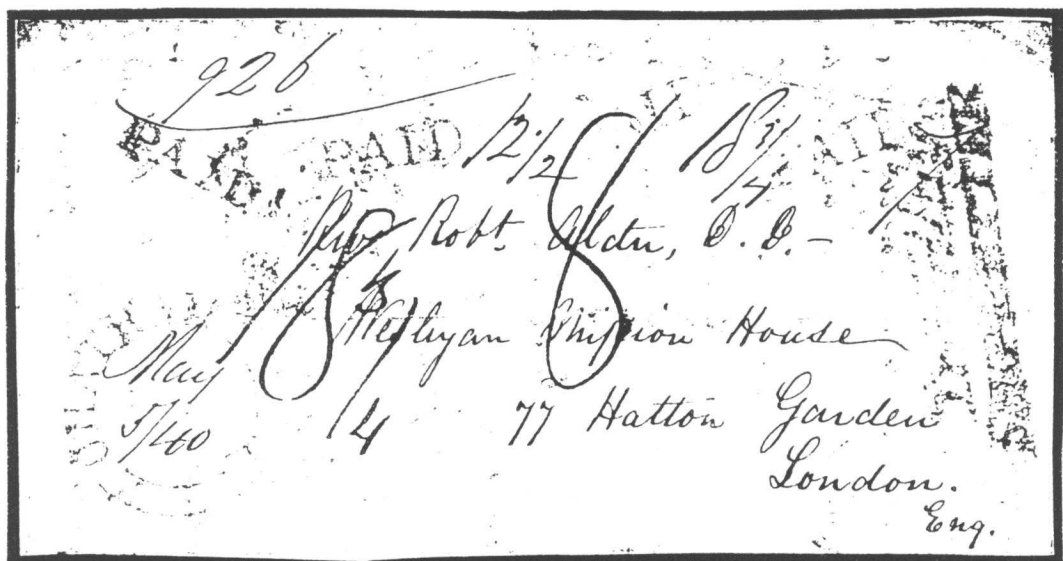 926
PAID. PAID 12 1/2 8 18 3/4
Revd Robt. Alder, D.D. —
18 3/4 Wesleyan Mission House
May
5/40 77 Hatton Garden
London.
Eng.